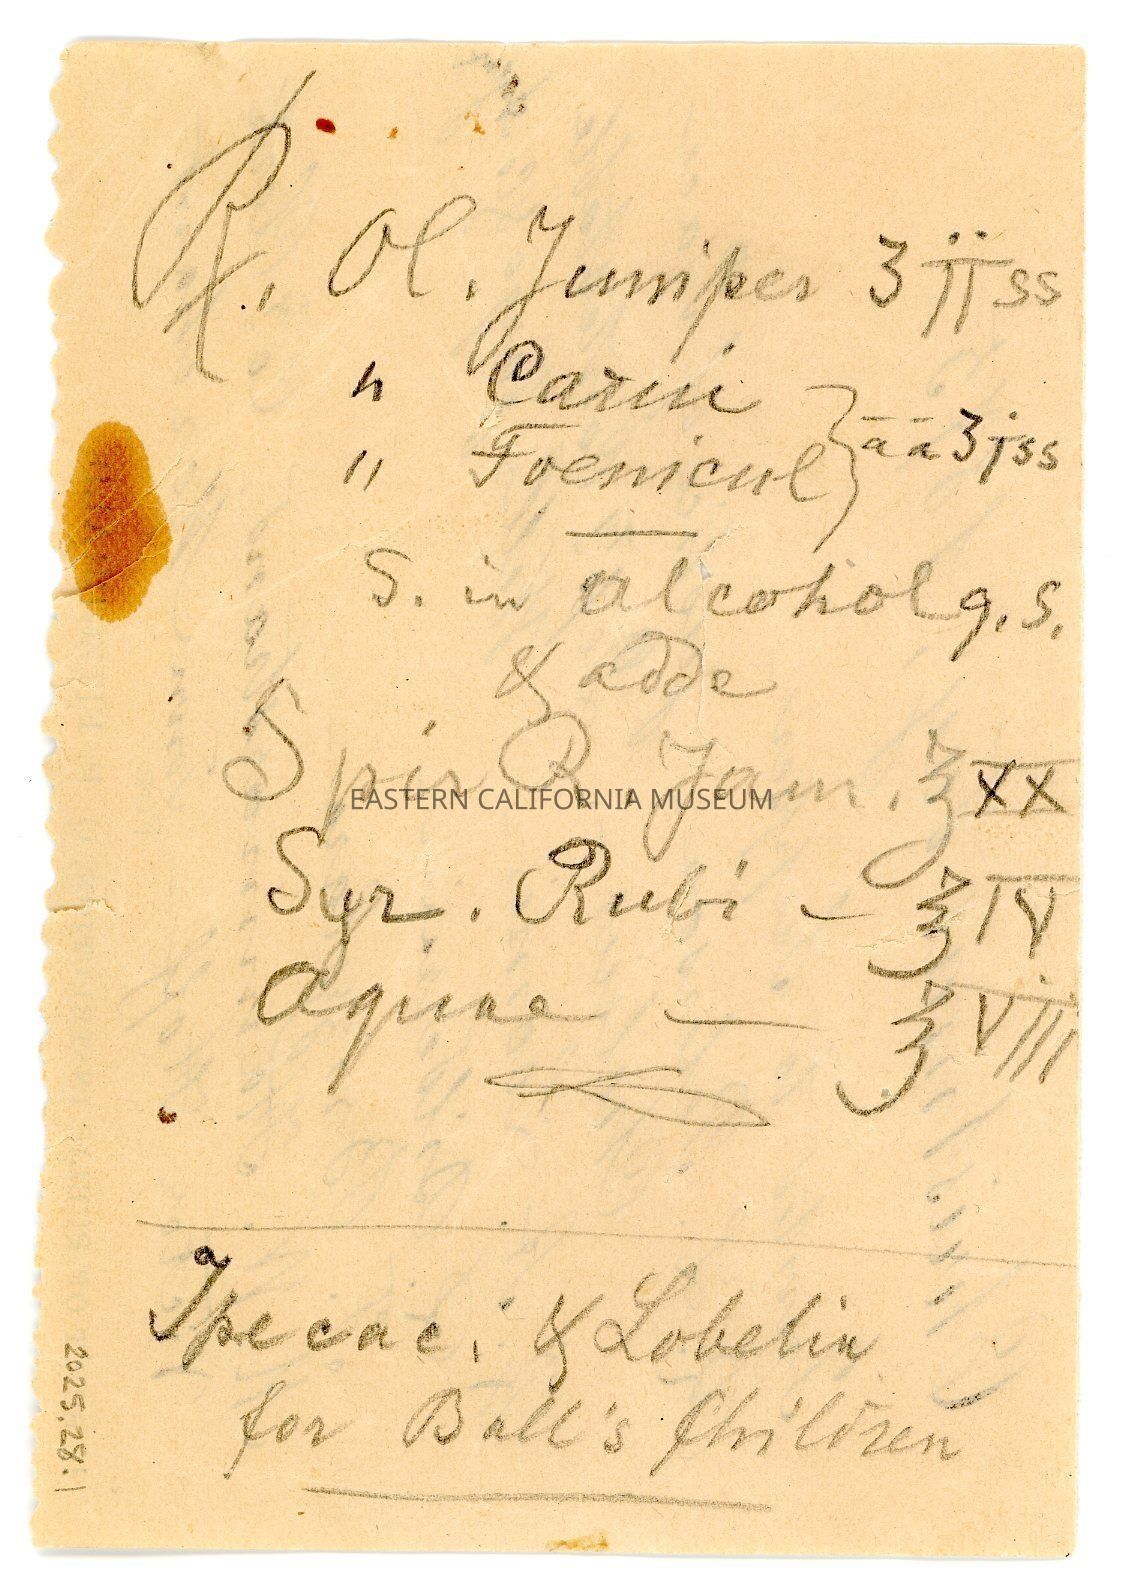 ℞. Ol. Juniper ʒ iiss
" Carui
" Foenicul } āā ʒ jss
S. in alcohol q.s.
& adde
Spir R. Jam. ℥ XX
Syr. Rubi – ℥ IV
Aquae — ℥ VIII
Ipecac. & Lobelia
for Ball's Children
EASTERN CALIFORNIA MUSEUM
2025.28.1